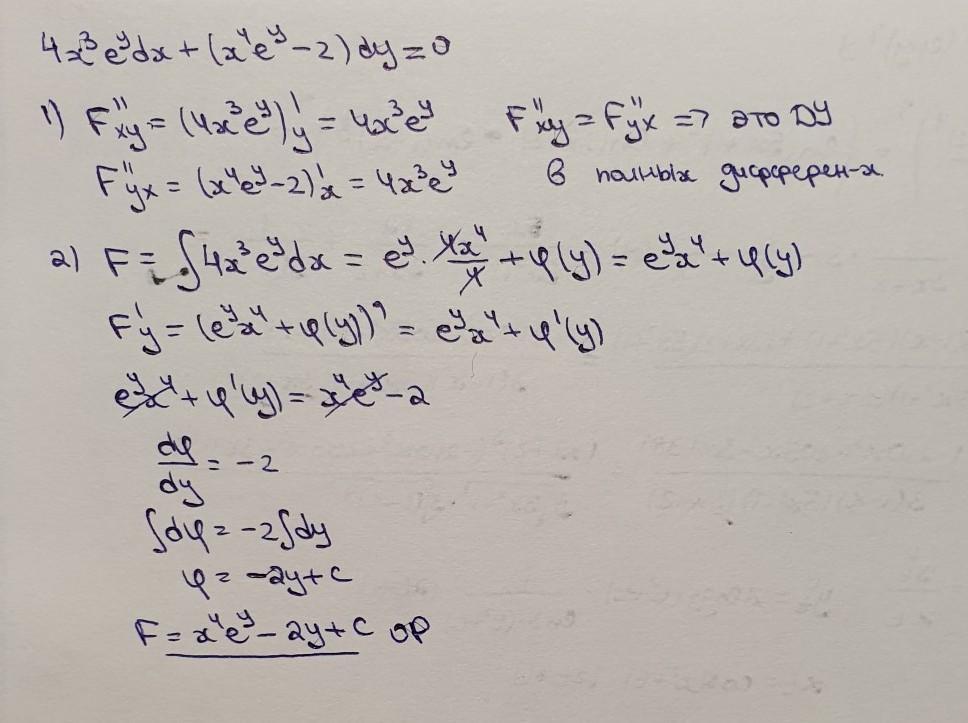 4x³eʸdx + (x⁴eʸ − 2)dy = 0
1) F''xy = (4x³eʸ)'y = 4x³eʸ F''xy = F''yx => это ДУ
F''yx = (x⁴eʸ − 2)'x = 4x³eʸ в полных дифферен-х.
2) F = ∫4x³eʸdx = eʸ · 4x⁴/4 + φ(y) = eʸx⁴ + φ(y)
F'y = (eʸx⁴ + φ(y))' = eʸx⁴ + φ'(y)
eʸx⁴ + φ'(y) = x⁴eʸ − 2
dφ/dy = −2
∫dφ = −2∫dy
φ = −2y + C
F = x⁴eʸ − 2y + C ОР